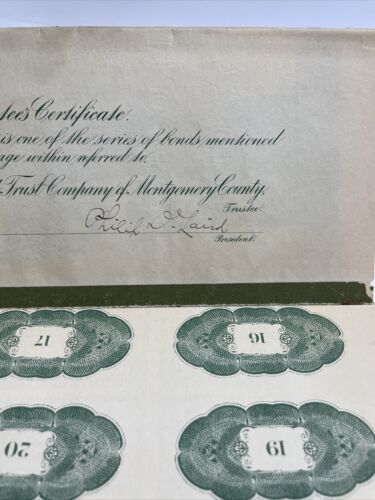 tee's Certificate.
is one of the series of bonds mentioned
age within referred to.
Trust Company of Montgomery County,
Trustee.
Philip D. Laird
President.
17
16
20
19